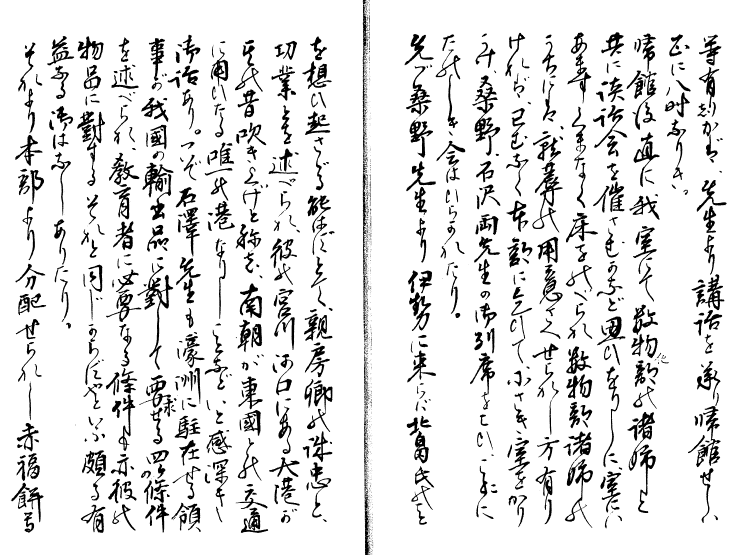 等有しかば、先生より講話を承り帰館せしハ
正に八時なりき。
帰館後直に我室にて数物化部の諸姉と
共に談話会を催さむかなど思ひをりしに、室にハ
あますくまなく床をのべられ数物部諸姉の
うちにハ、就蓐の用意さへせられし方有り
ければ、已むなく本部に乞ひて小さき室をかり
うけ、桑野、石沢両先生の御列席を乞ひ、こゝに
たのしき会はひらかれたり。
先づ桑野先生より伊勢に来らば北畠氏のこと
を想ひ起さざる能はずとて、親房卿の誠忠と、
功業とを述べられ、彼の宮川河口にある大港が
其の昔吹き上げと称し、南朝が東國との交通
に用ひたる唯一の港なりしことなどいと感深き
御話あり。ついで石澤先生も濠洲に駐在せる領
事が我國の輸出品に對して要求せる四ヶの條件
を述べられ、教育者に必要なる條件も亦彼の
物品に對するそれと同じからずやといふ頗る有
益なる御はなしありたり。
それより本部より分配せられし赤福餅等